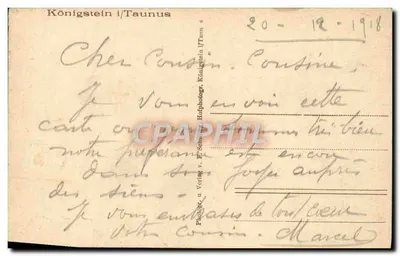 Königstein i/Taunus
20 - 12 - 1918
Cher Cousin. Cousine.
Je vous envoie cette
carte ou
CPAPHIL
très bien
notre est encore
dans son auprès
des siens.
Je vous embrasse de tout coeur
votre cousin. Marcel
u Verlag v. Hofphotogr. Königstein i/Taun